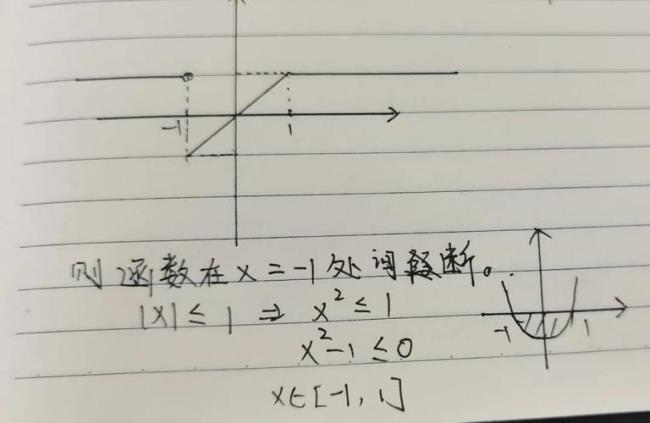 -1 1
则函数在x=-1处间断。
|x|≤1 ⇒ x²≤1
-1 1
x²-1≤0
x∈[-1,1]